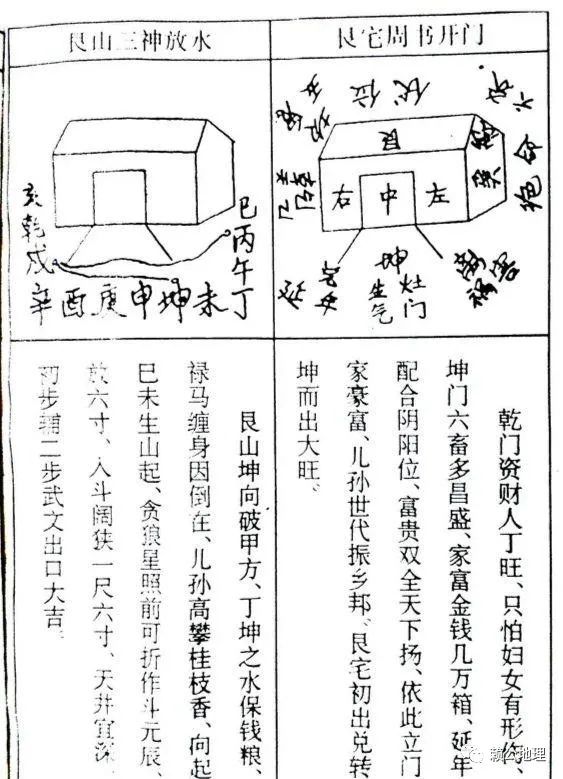 艮宅周书开门
伏位
艮
右 中 左
坤
生气
灶门
乾门资财人丁旺、只怕妇女有形
坤门六畜多昌盛、家富金钱几万箱、延年
配合阴阳位、富贵双全天下扬、依此立门
家豪富、儿孙世代振乡邦、艮宅初出兑转
坤而出大旺、
艮山三神放水
亥乾戌
巳丙午丁
辛酉庚申坤未
艮山坤向破甲方、丁坤之水保钱粮、
禄马缠身因倒在、儿孙高攀桂枝香、向起
巳未生山起、贪狼星照前可折作斗元辰、
放六寸、入斗阔狭一尺六寸、天井宜深
初步辅二步武文出口大吉、
赖公地理